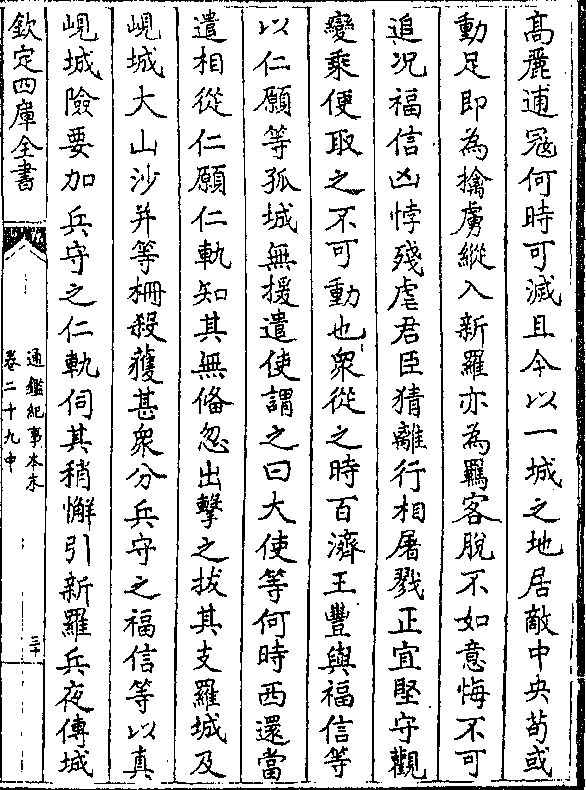 高麗逋冦何時可滅且今以一城之地居敵中央茍或
動足即為擒虜縱入新羅亦為羈客脫不如意悔不可
追况福信凶悖殘虐君臣猜離行相屠戮正宜堅守觀
變乘便取之不可動也衆從之時百濟王豐與福信等
以仁願等孤城無援遣使謂之曰大使等何時西還當
遣相從仁願仁軌知其無備忽出擊之拔其支羅城及
峴城大山沙井等柵殺獲甚衆分兵守之福信等以真
峴城險要加兵守之仁軌伺其稍懈引新羅兵夜傅城
欽定四庫全書
通鑑紀事本末
卷二十九中
三十